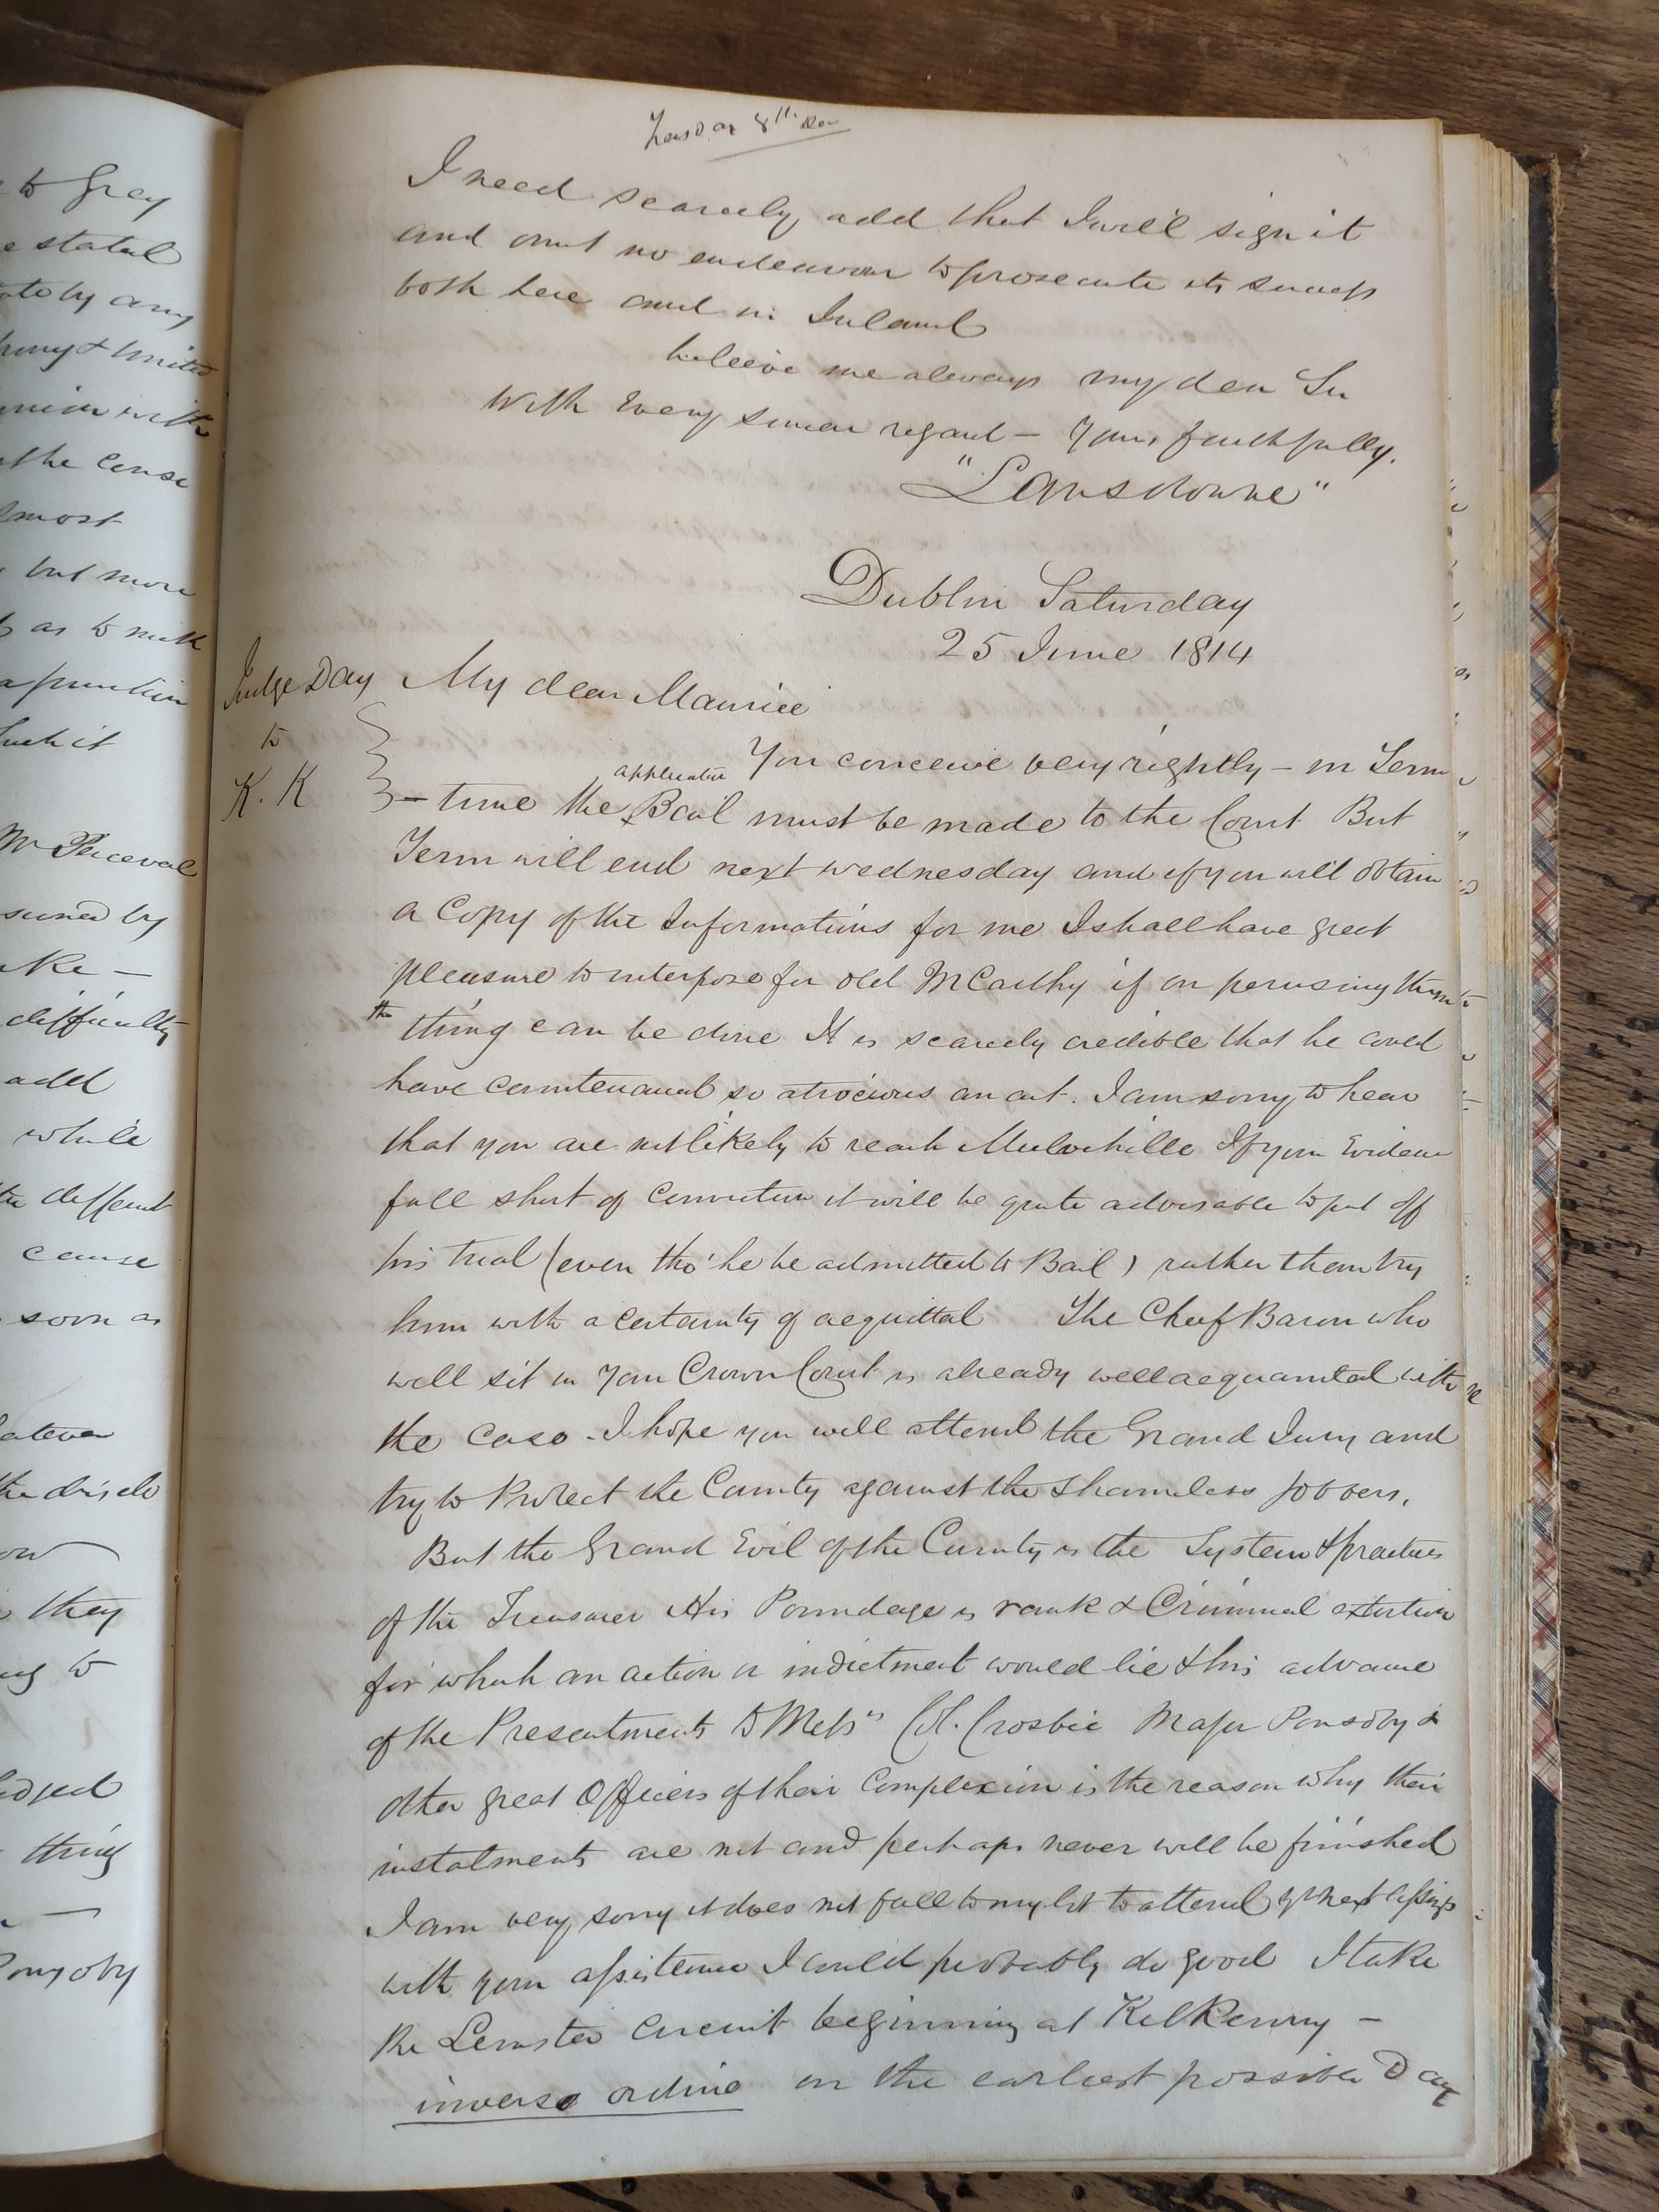 8th
I need scarcely add that I will sign it
and omit no endeavour to prosecute its success
both here and in Ireland
believe me always my dear Sir
With Every sincere regard — Yours faithfully.
"Lansdowne"
Dublin Saturday
25 June 1814
Judge Day
to
K. K
My dear Maurice
You conceive very rightly — in Term
application
— time the Bail must be made to the Court But
Term will end next wednesday and if you will obtain
a Copy of the Informations for me I shall have great
pleasure to interpose for old McCarthy if on perusing them
the
thing can be done It is scarcely credible that he could
have countenanced so atrocious an act. I am sorry to hear
that you are not likely to reach Mulvihille If your Evidence
fall short of Conviction it will be quite advisable to put off
his trial (even tho' he be admitted to Bail) rather than try
him with a certainty of acquittal The Chief Baron who
will sit in your Crown Court is already well acquainted with
the case - I hope you will attend the Grand Jury and
try to Protect the County against the Shameless jobbers.
But the Grand Evil of the County is the System & practices
of the Treasurer His Poundage is rank & Criminal extortion
for which an action or indictment would lie & his advance
of the Presentments to Messrs Col. Crosbie Major Ponsoby &
other great Officers of their Complexion is the reason why their
instalments are not and perhaps never will be finished
I am very sorry it does not fall to my lot to attend yr next Assizes
with your assistance I could probably do good I take
the Leinster Circuit beginning at Kilkenny —
inverso ordine on the earliest possible Day
to Grey
e stated
ate by any
& United
with
the Cense
almost
but more
as to
such it
Mr Perceval
by
ke —
difficulty
add
while
the different
cause
soon as
atever
the disclo
ow
they
to
thing
Ponsoby